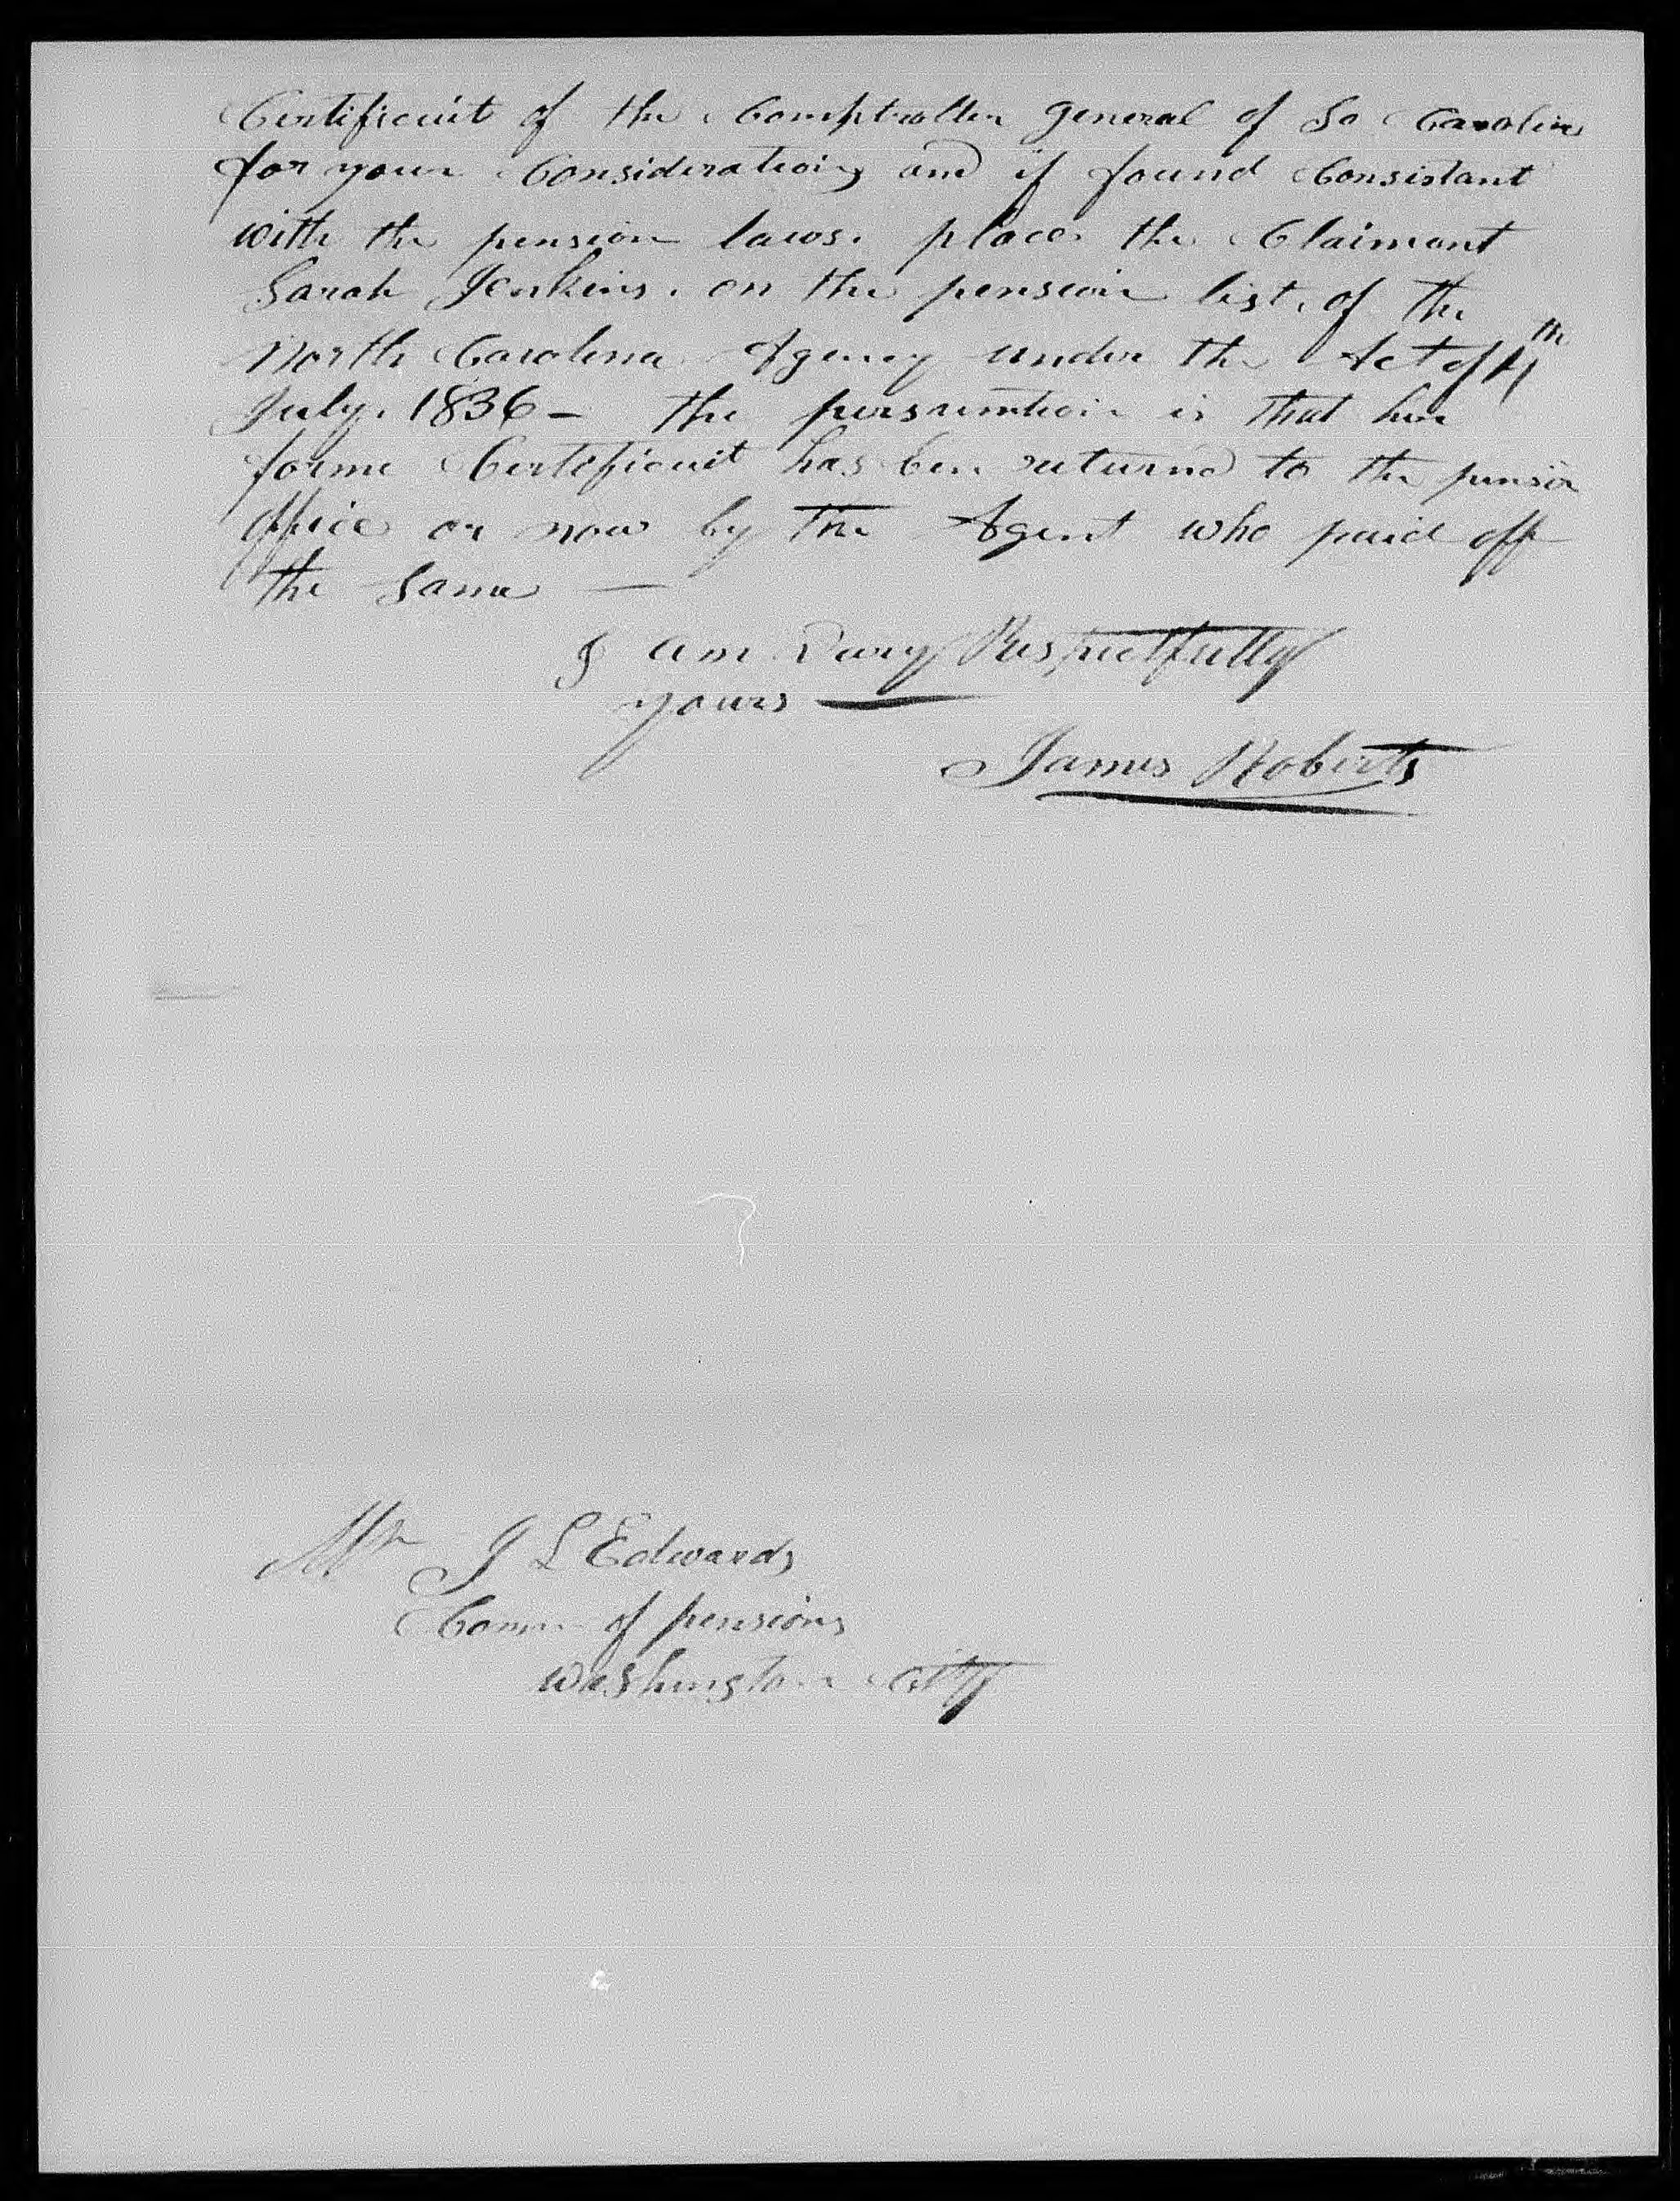 Certificait of the Comptroller general of So Carolina
for your Consideration, and if found Consistant
with the pension laws. place the Claimant
Sarah Jenkins. on the pension list, of the
North Carolina Agency under the Act of 4th
July. 1836 – the persumtion is that her
forme Certificait has ben returnd to the pension
office or now by the Agent who paid off
the Same —
I am Vary Respectfully
yours —
James Roberts
Mr J L Edwards
Comr of pensions
Washington City